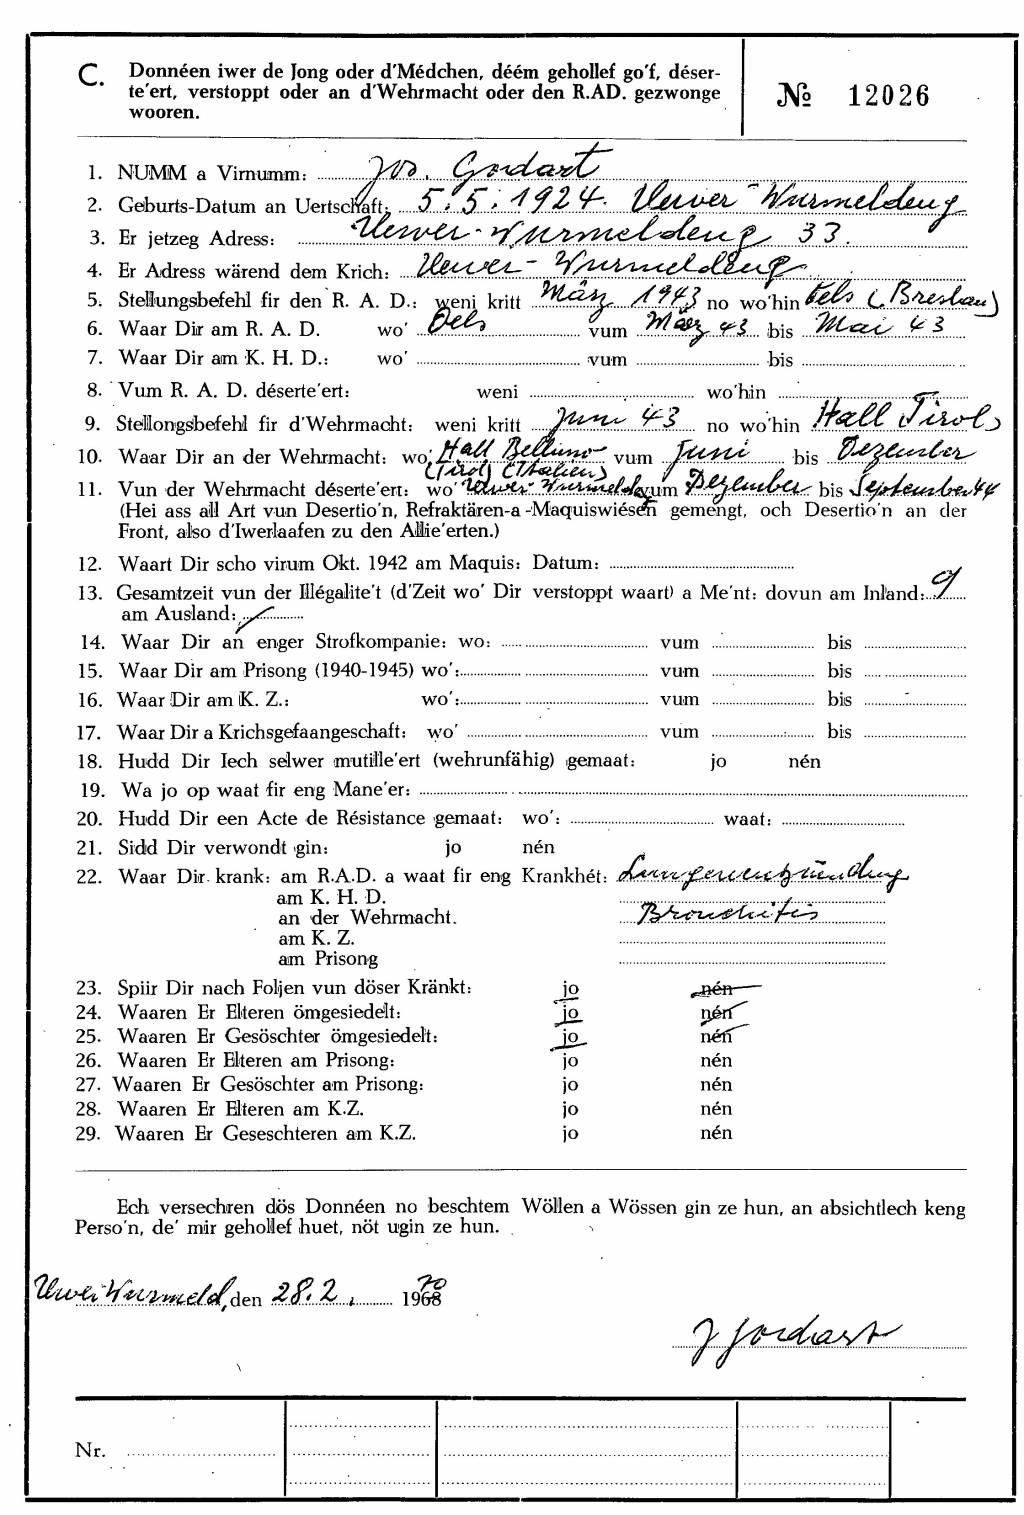 C. Donnéen iwer de Jong oder d'Médchen, déém gehollef go'f, déser-
te'ert, verstoppt oder an d'Wehrmacht oder den R.AD. gezwonge
wooren.
№ 12026
1. NUMM a Virnumm: Jos. Gordart
2. Geburts-Datum an Uertschaft: 5.5.1924. Uewer-Wurmeldeng
3. Er jetzeg Adress: Uewer-Wurmeldeng 33.
4. Er Adress wärend dem Krich: Uewer-Wurmeldeng
5. Stellungsbefehl fir den R. A. D.: weni kritt März 1943 no wo'hin Oels (Breslau)
6. Waar Dir am R. A. D. wo' Oels vum März 43 bis Mai 43
7. Waar Dir am K. H. D.: wo' vum bis
8. Vum R. A. D. déserte'ert: weni wo'hin
9. Stellongsbefehl fir d'Wehrmacht: weni kritt Juni 43 no wo'hin Hall (Tirol)
10. Waar Dir an der Wehrmacht: wo' Hall Belluno vum Juni bis Dezember
(Tirol) (Italien)
11. Vun der Wehrmacht déserte'ert: wo' Uewer Wurmeldg vum Dezember bis September 44
(Hei ass all Art vun Desertio'n, Refraktären-a -Maquiswiésen gemengt, och Desertio'n an der
Front, also d'Iwerlaafen zu den Allie'erten.)
12. Waart Dir scho virum Okt. 1942 am Maquis: Datum:
13. Gesamtzeit vun der Illégalite't (d'Zeit wo' Dir verstoppt waart) a Me'nt: dovun am Inland: 9
am Ausland: /
14. Waar Dir an enger Strofkompanie: wo: vum bis
15. Waar Dir am Prisong (1940-1945) wo': vum bis
16. Waar Dir am K. Z.: wo': vum bis
17. Waar Dir a Krichsgefaangeschaft: wo' vum bis
18. Hudd Dir Iech selwer mutille'ert (wehrunfähig) gemaat: jo nén
19. Wa jo op waat fir eng Mane'er:
20. Hudd Dir een Acte de Résistance gemaat: wo': waat:
21. Sidd Dir verwondt gin: jo nén
22. Waar Dir krank: am R.A.D. a waat fir eng Krankhét: Lungenentzündung
am K. H. D.
an der Wehrmacht. Bronchitis
am K. Z.
am Prisong
23. Spiir Dir nach Foljen vun döser Kränkt: jo nén
24. Waaren Er Elteren ömgesiedelt: jo nén
25. Waaren Er Gesöschter ömgesiedelt: jo nén
26. Waaren Er Elteren am Prisong: jo nén
27. Waaren Er Gesöschter am Prisong: jo nén
28. Waaren Er Elteren am K.Z. jo nén
29. Waaren Er Geseschteren am K.Z. jo nén
Ech versechren dös Donnéen no beschtem Wöllen a Wössen gin ze hun, an absichtlech keng
Perso'n, de' mir gehollef huet, nöt ugin ze hun.
Uwer Wurmeld, den 28.2. 1968 70
J Gordart
Nr.